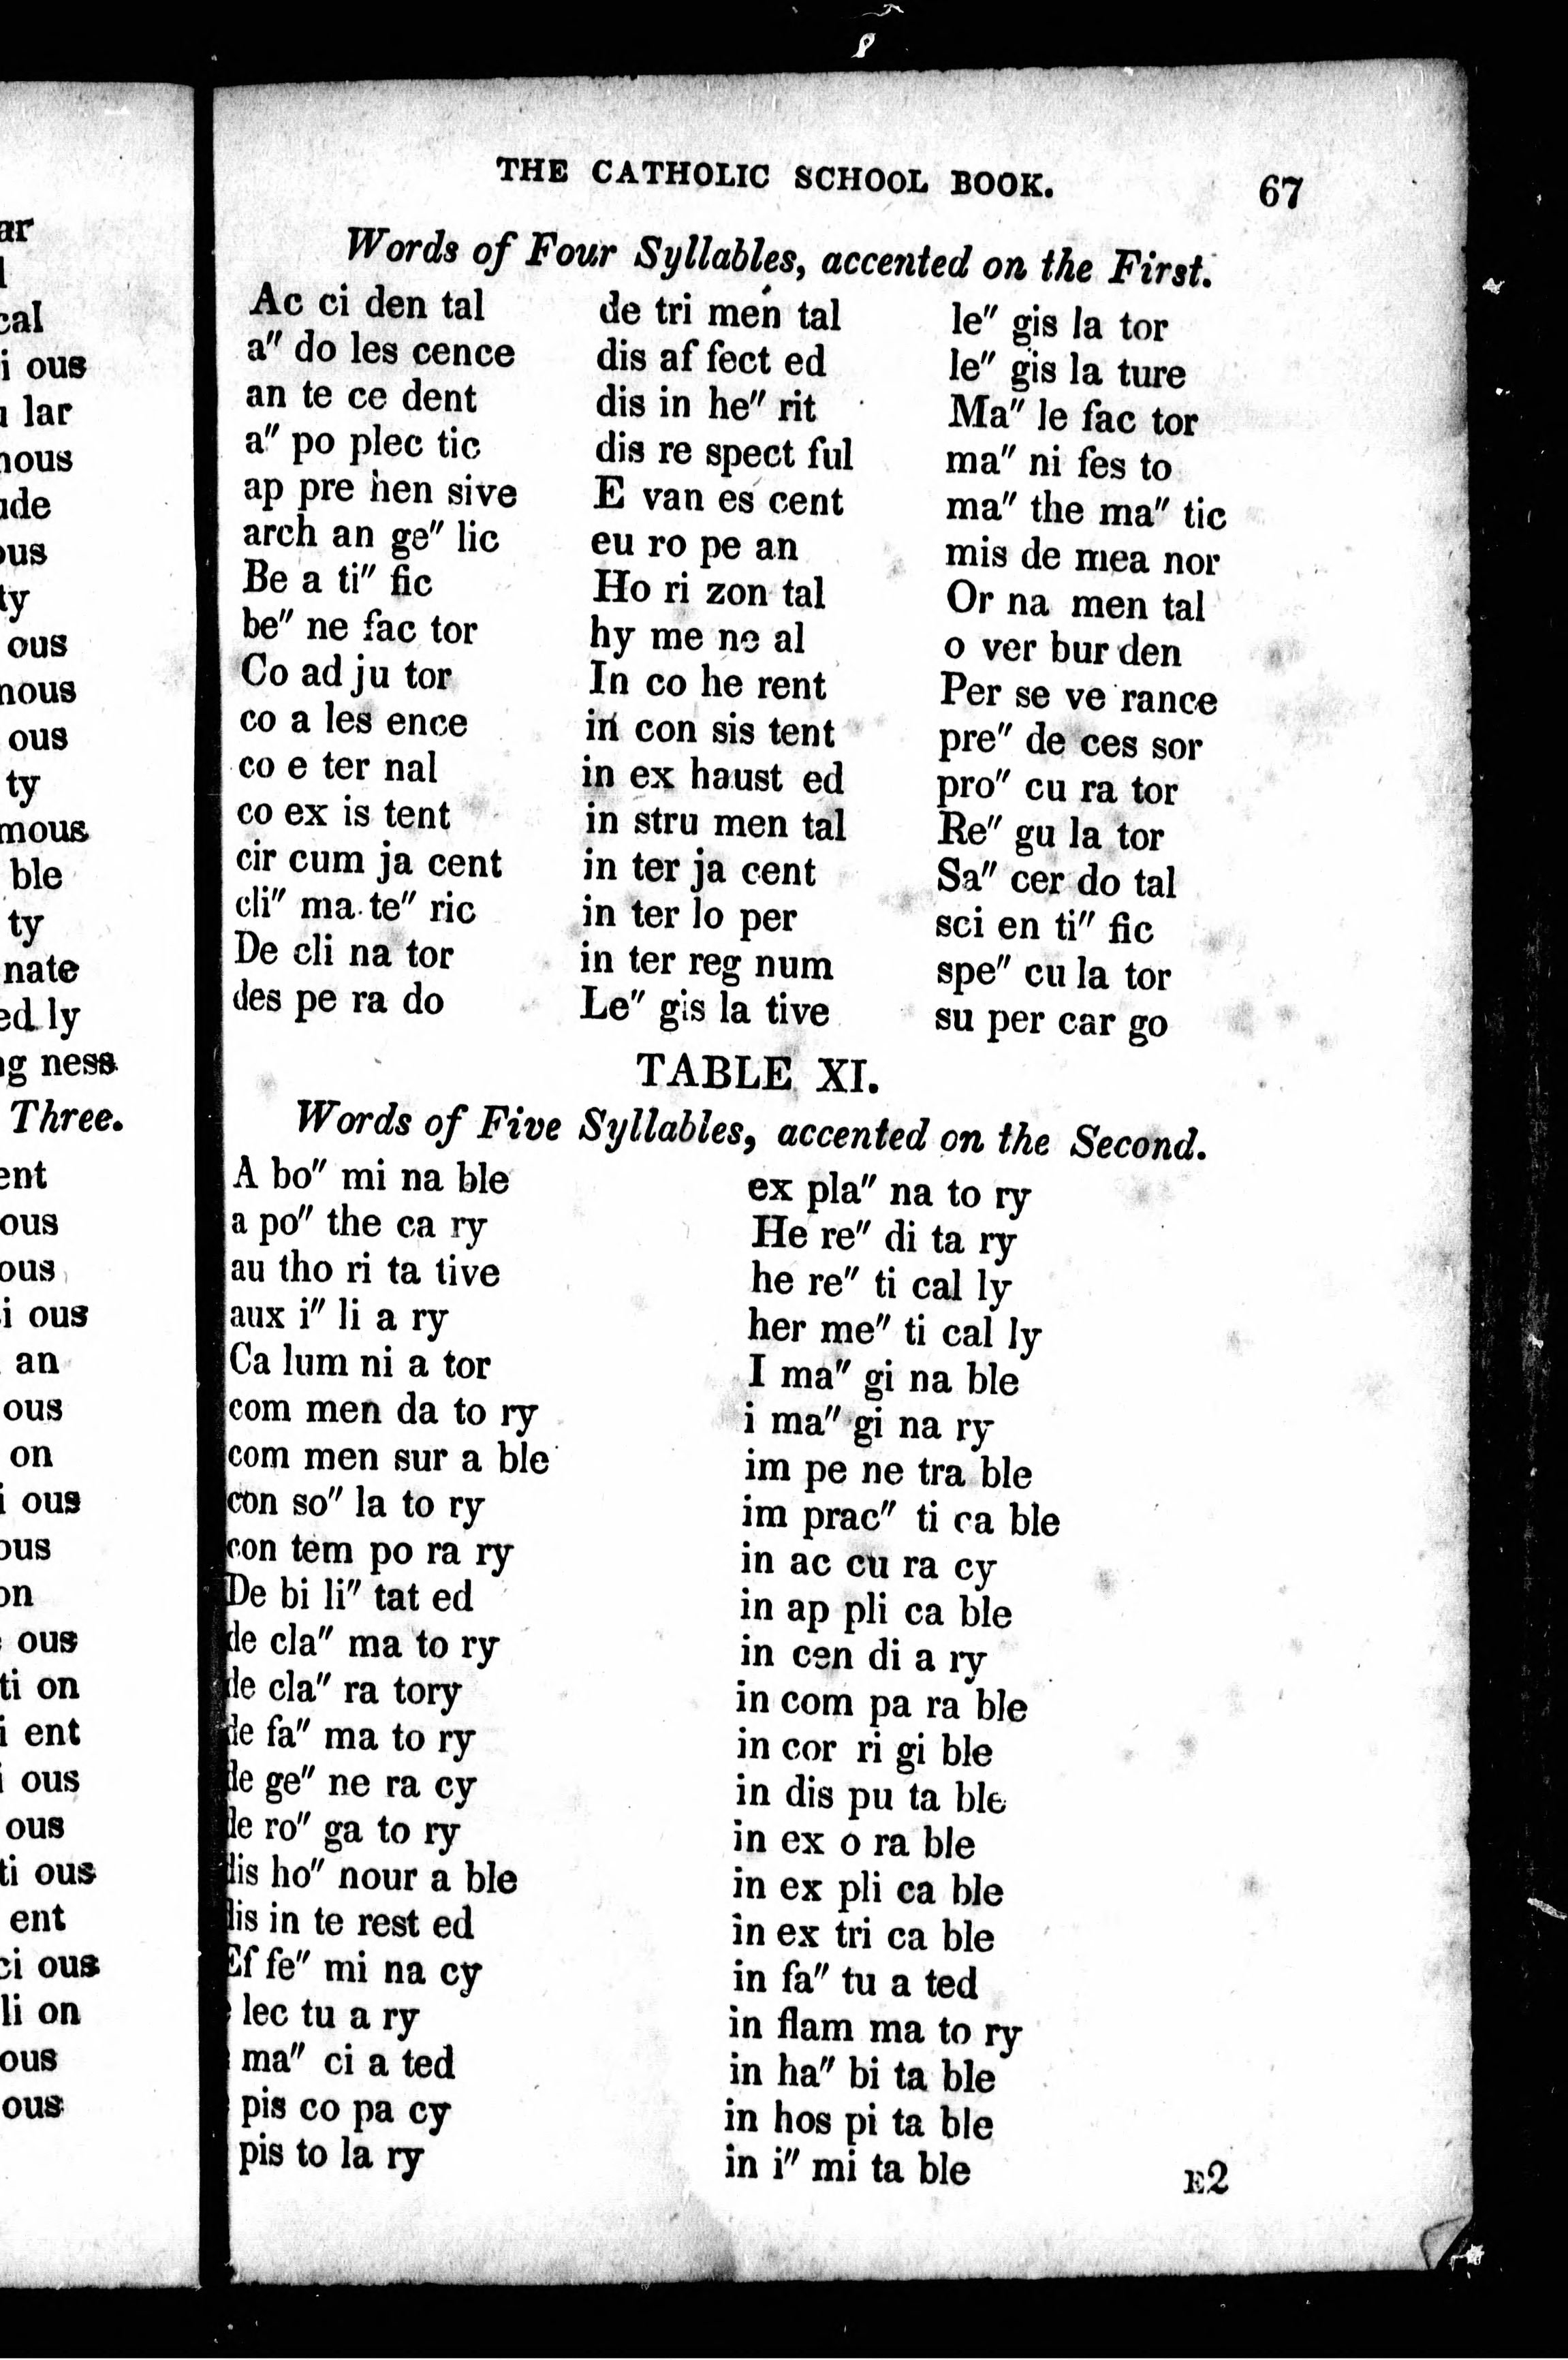 THE CATHOLIC SCHOOL BOOK. 67
Words of Four Syllables, accented on the First.
Ac ci den tal
a″ do les cence
an te ce dent
a″ po plec tic
ap pre hen sive
arch an ge″ lic
Be a ti″ fic
be″ ne fac tor
Co ad ju tor
co a les ence
co e ter nal
co ex is tent
cir cum ja cent
cli″ ma te″ ric
De cli na tor
des pe ra do
de tri men tal
dis af fect ed
dis in he″ rit
dis re spect ful
E van es cent
eu ro pe an
Ho ri zon tal
hy me ne al
In co he rent
in con sis tent
in ex haust ed
in stru men tal
in ter ja cent
in ter lo per
in ter reg num
Le″ gis la tive
le″ gis la tor
le″ gis la ture
Ma″ le fac tor
ma″ ni fes to
ma″ the ma″ tic
mis de mea nor
Or na men tal
o ver bur den
Per se ve rance
pre″ de ces sor
pro″ cu ra tor
Re″ gu la tor
Sa″ cer do tal
sci en ti″ fic
spe″ cu la tor
su per car go
TABLE XI.
Words of Five Syllables, accented on the Second.
A bo″ mi na ble
a po″ the ca ry
au tho ri ta tive
aux i″ li a ry
Ca lum ni a tor
com men da to ry
com men sur a ble
con so″ la to ry
con tem po ra ry
De bi li″ tat ed
de cla″ ma to ry
de cla″ ra tory
de fa″ ma to ry
de ge″ ne ra cy
de ro″ ga to ry
dis ho″ nour a ble
dis in te rest ed
Ef fe″ mi na cy
lec tu a ry
ma″ ci a ted
pis co pa cy
pis to la ry
ex pla″ na to ry
He re″ di ta ry
he re″ ti cal ly
her me″ ti cal ly
I ma″ gi na ble
i ma″ gi na ry
im pe ne tra ble
im prac″ ti ca ble
in ac cu ra cy
in ap pli ca ble
in cen di a ry
in com pa ra ble
in cor ri gi ble
in dis pu ta ble
in ex o ra ble
in ex pli ca ble
in ex tri ca ble
in fa″ tu a ted
in flam ma to ry
in ha″ bi ta ble
in hos pi ta ble
in i″ mi ta ble
E2